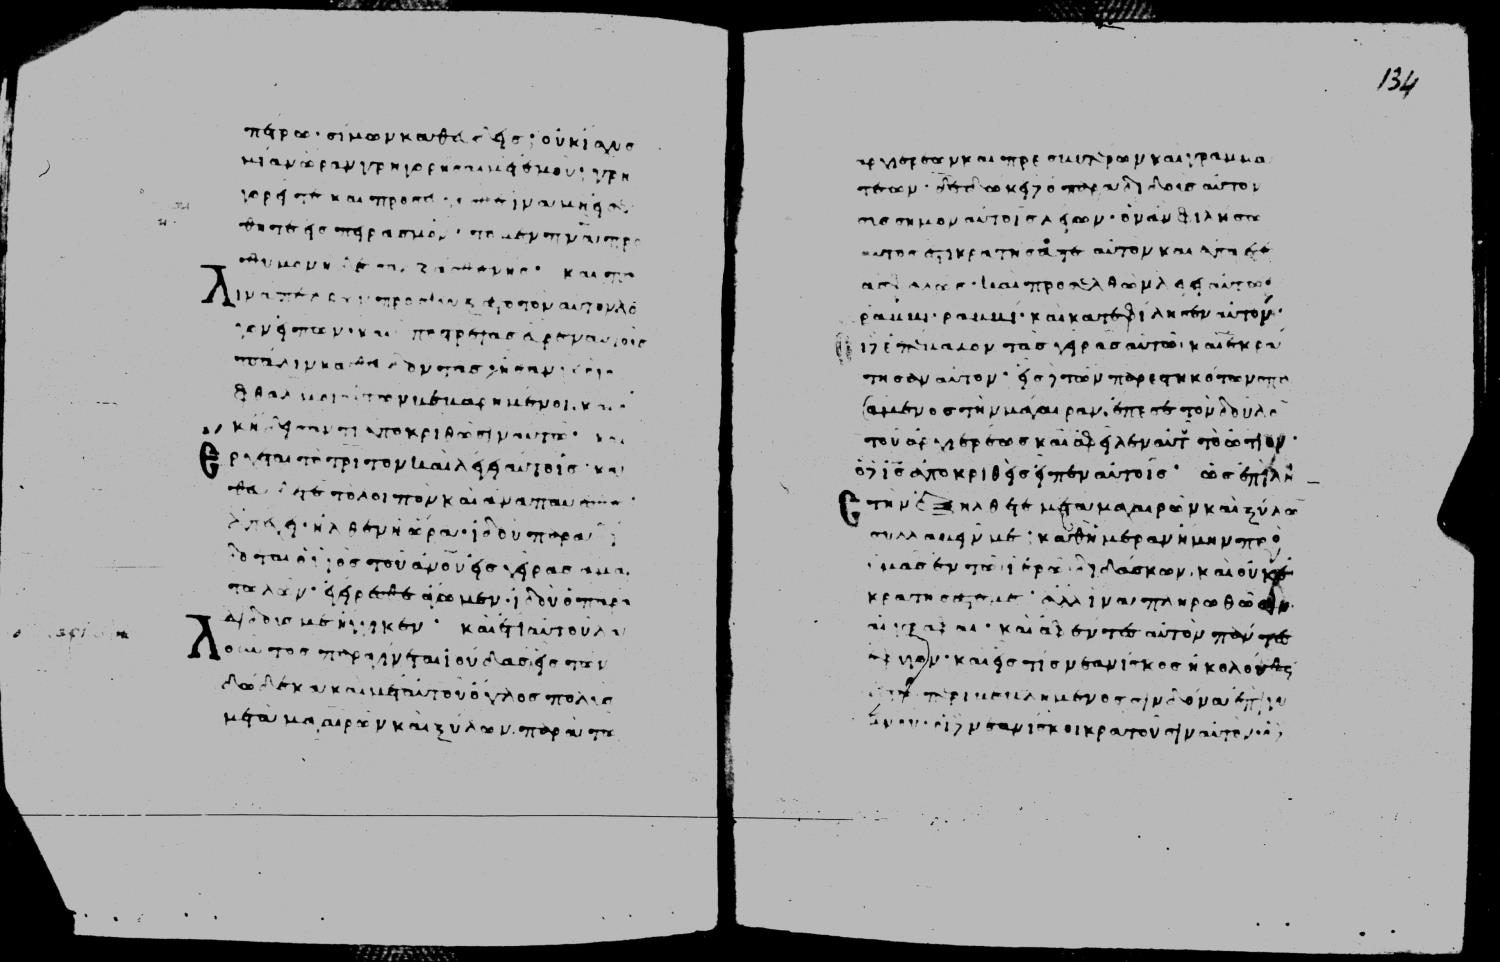 πέτρω· σίμων καθεύδεις; οὐκ ἰσχυσ
μίαν ὥραν γρηγορῆσαι μετ ἐμοῦ; γρη
γορεῖτε καὶ προσεύ ἵνα μὴ εἰσέλ
θητε εἰς πειρασμόν· τὸ μὲν πνα προ
θυμον ἡ δὲ σὰρξ ἀσθενής· καὶ πα
λιν ἀπελθὼν προσηύξατο τὸν αὐτὸν λό
γον εἰπών· καὶ αὐτοὺς
πάλιν καθεύδοντας ἦσαν γὰρ οἱ
ὀφθαλμοὶ αὐτῶν καὶ οὐ
τί ἀποκριθῶσιν αὐτῶ· καὶ
ἔρχεται τὸ τρίτον καὶ λέγει αὐτοῖς· κα
θεύδετε τὸ λοιπὸν καὶ ἀναπαύεσθε·
ἀπέχει· ἦλθεν ἡ ὥρα· ἰδοὺ παραδί
δοται ὁ υἱὸς τοῦ ἀνου εἰς χεῖρας ἁμαρ
τωλῶν· ἐγείρεσθε ἄγωμεν· ἰδοὺ ὁ παρα
διδούς με ἤγγικεν· καὶ ἔτι αὐτοῦ λα
λοῦντος παραγίνεται ἰούδας εἷς τῶν
δώδεκα καὶ μετ αὐτοῦ ὄχλος πολὺς
μετὰ μαχαιρῶν καὶ ξύλων παρὰ τῶν
134
ἀρχιερέων καὶ πρεσβυτέρων καὶ γραμμα
τέων· δέδωκει δὲ ὁ παραδιδοὺς αὐτὸν
σύσσημον αὐτοῖς λέγων· ὃν ἂν φιλήσω
αὐτός ἐστι κρατήσατε αὐτὸν καὶ ἀπάγετε
ἀσφαλῶς· καὶ προσελθὼν λέγει αὐτῶ
ῥαββί· ῥαββί· καὶ κατεφίλησεν αὐτόν·
οἱ δὲ ἐπέβαλον τὰς χεῖρας αὐτῶ· καὶ ἐκρά
τησαν αὐτόν· εἷς δὲ τῶν παρεστηκότων σπα
σάμενος τὴν μάχαιραν, ἔπαισε τὸν δοῦλο
τοῦ ἀρχιερέως καὶ ἀφεῖλεν αὐτ τὸ ὠτίον·
ὁ δὲ ις ἀποκριθεὶς εἶπεν αὐτοῖς· ὡς ἐπὶ λη
στὴν ἐξήλθετε μετὰ μαχαιρῶν καὶ ξύλων
συλλαβεῖν με; καθ ἡμέραν ἤμην πρὸ
ὑμᾶς ἐν τῶ ἱερῶ διδάσκων, καὶ οὐκ ἐ
κρατήσατέ με· ἀλλ ἵνα πληρωθῶσιν
αἱ γραφαί· καὶ ἀφέντες αὐτὸν πάντες
ἔφυγον· καὶ εἷς τις νεανίσκος ἠκολούθει
περιβεβλημένος σινδόνα ἐπὶ γυ
μνοῦ· οἱ δὲ νεανίσκοι κρατοῦσιν αὐτόν· ὁ δ